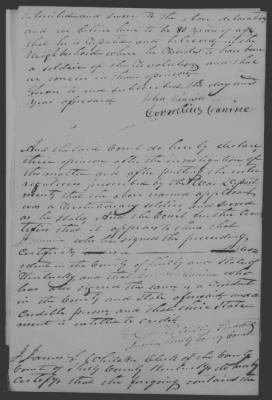 subscribed and sworn to the above declaration
and we believe him to be 80 years of age
that he is reputed and believed in the
Neighborhood where he resides to have been
a soldier of the revolution and that
we concur in that opinion
Sworn to and subscribed the day and
year aforesaid John
Cornelius Vannice
And the said Court do hereby declare
their opinion after the investigation of
the matter and after putting the inter
rogatories prescribed by the War Depart
ment that the above named applicant
was a revolutionary soldier and served
as he states And the Court further cer
tifies that it appears to them that
who has signed the preceding
certificate is a resi
dent in the County of Shelby and State of
Kentucky and that who
has also signed the same is a resident
in the County and State aforesaid and a
credible person and that their state
ment is entitled to credit
I James S Whitaker Clerk of the County
Court of Shelby County Kentucky do hereby
certify that the foregoing contains the